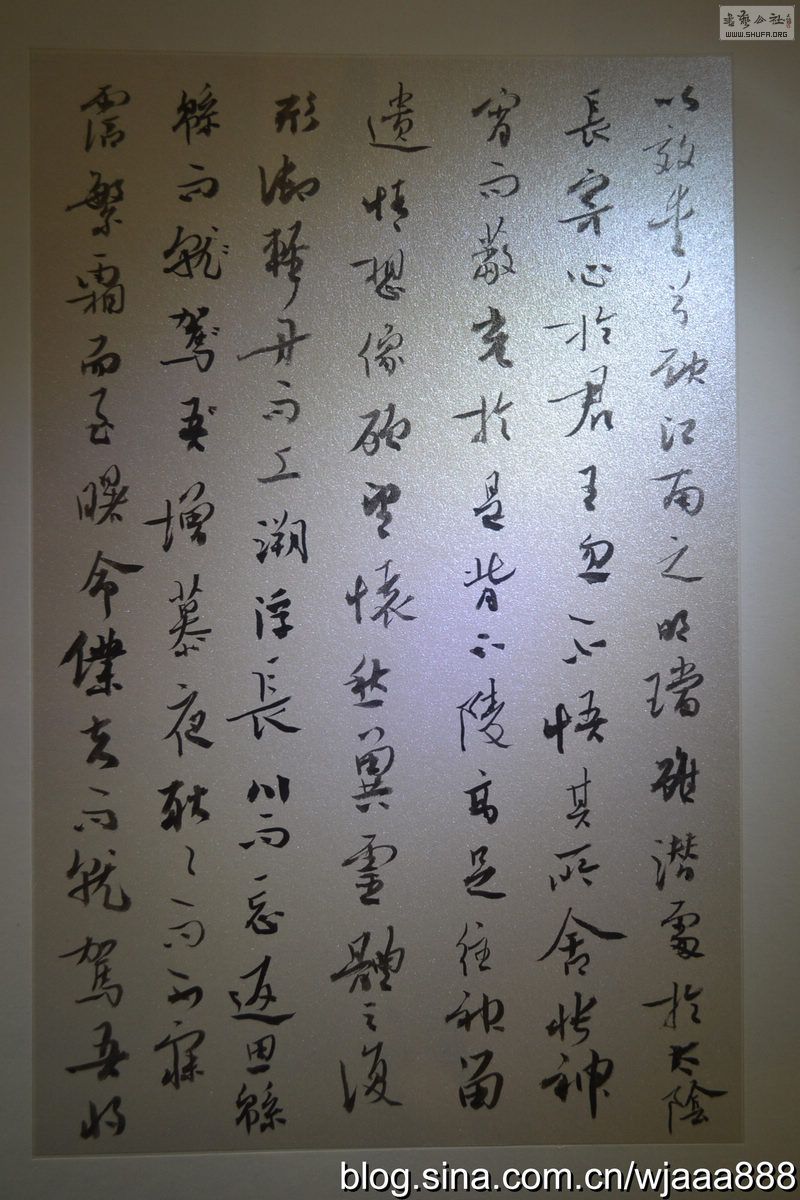 書藝公社
WWW.SHUFA.ORG
以效愛兮獻江南之明璫雖潛處於太陰
長寄心於君王忽不悟其所舍悵神
宵而蔽光於是背下陵高足往神留
遺情想像顧望懷愁冀靈體之復
形御輕舟而上溯浮長川而忘返思綿
綿而就駕吾增慕夜耿々而不寐
霑繁霜而至曙命僕夫而就駕吾將
blog.sina.com.cn/wjaaa888